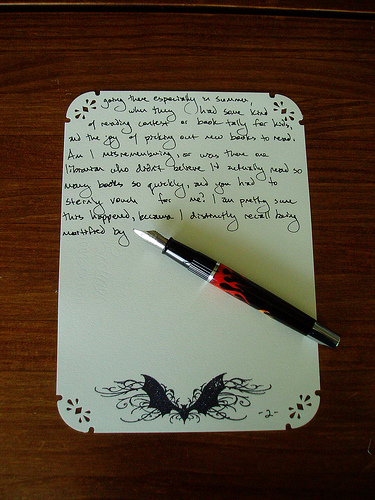 going there especially in summer
when they had some kind
of reading contest or book tally for kids,
and the joy of picking out new books to read.
Am I misremembering, or was there one
librarian who didn't believe I'd actually read so
many books so quickly, and you had to
sternly vouch for me? I am pretty sure
this happened, because I distinctly recall being
mortified by
-2-